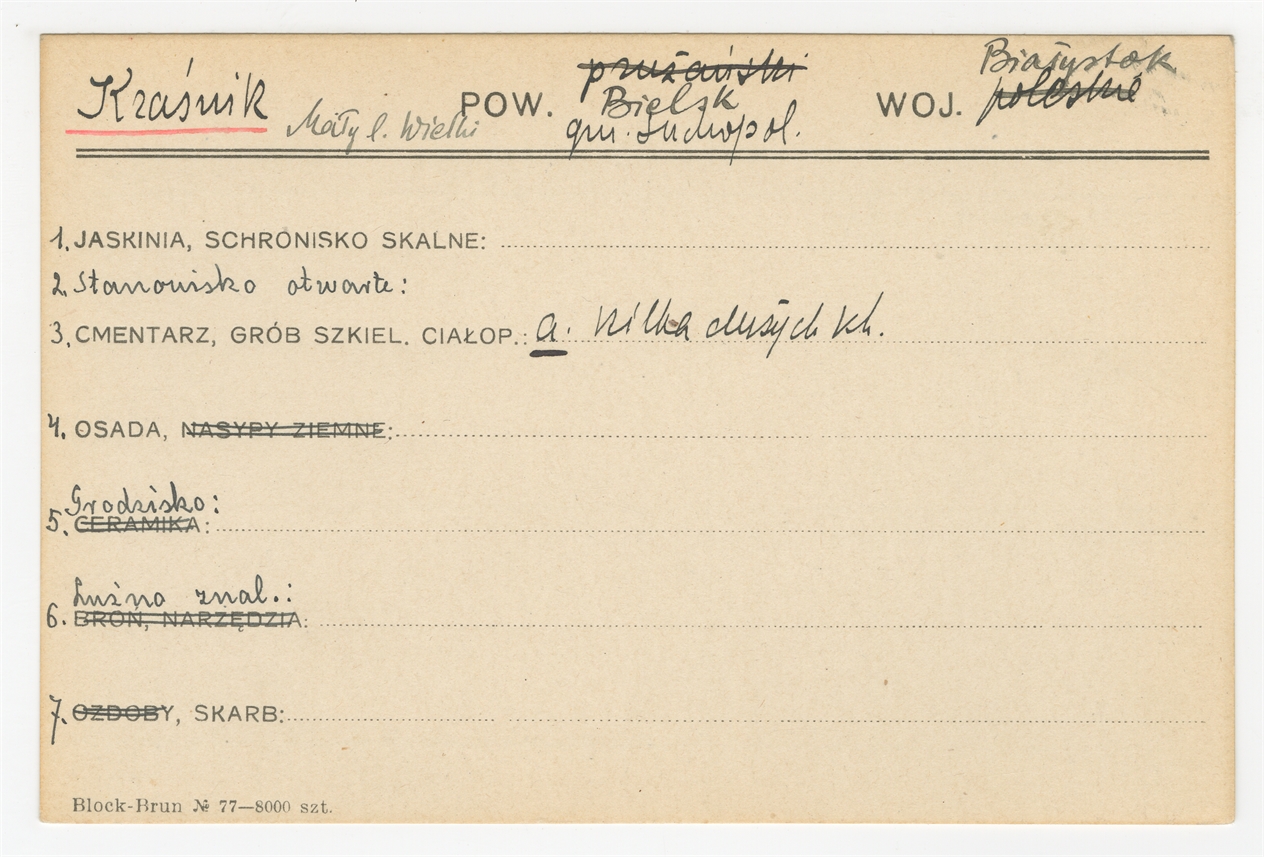 Kraśnik Mały l. Wielki POW. prużański Bielsk gm. Suchopol. WOJ. Białystok poleskie
1. JASKINIA, SCHRONISKO SKALNE:
2. Stanowisko otwarte:
3. CMENTARZ, GRÓB SZKIEL. CIAŁOP.: a. kilka dużych kh.
4. OSADA, NASYPY ZIEMNE:
Grodzisko:
5. CERAMIKA:
Luźno znal.:
6. BROŃ, NARZĘDZIA:
7. OZDOBY, SKARB:
Block-Brun № 77—8000 szt.